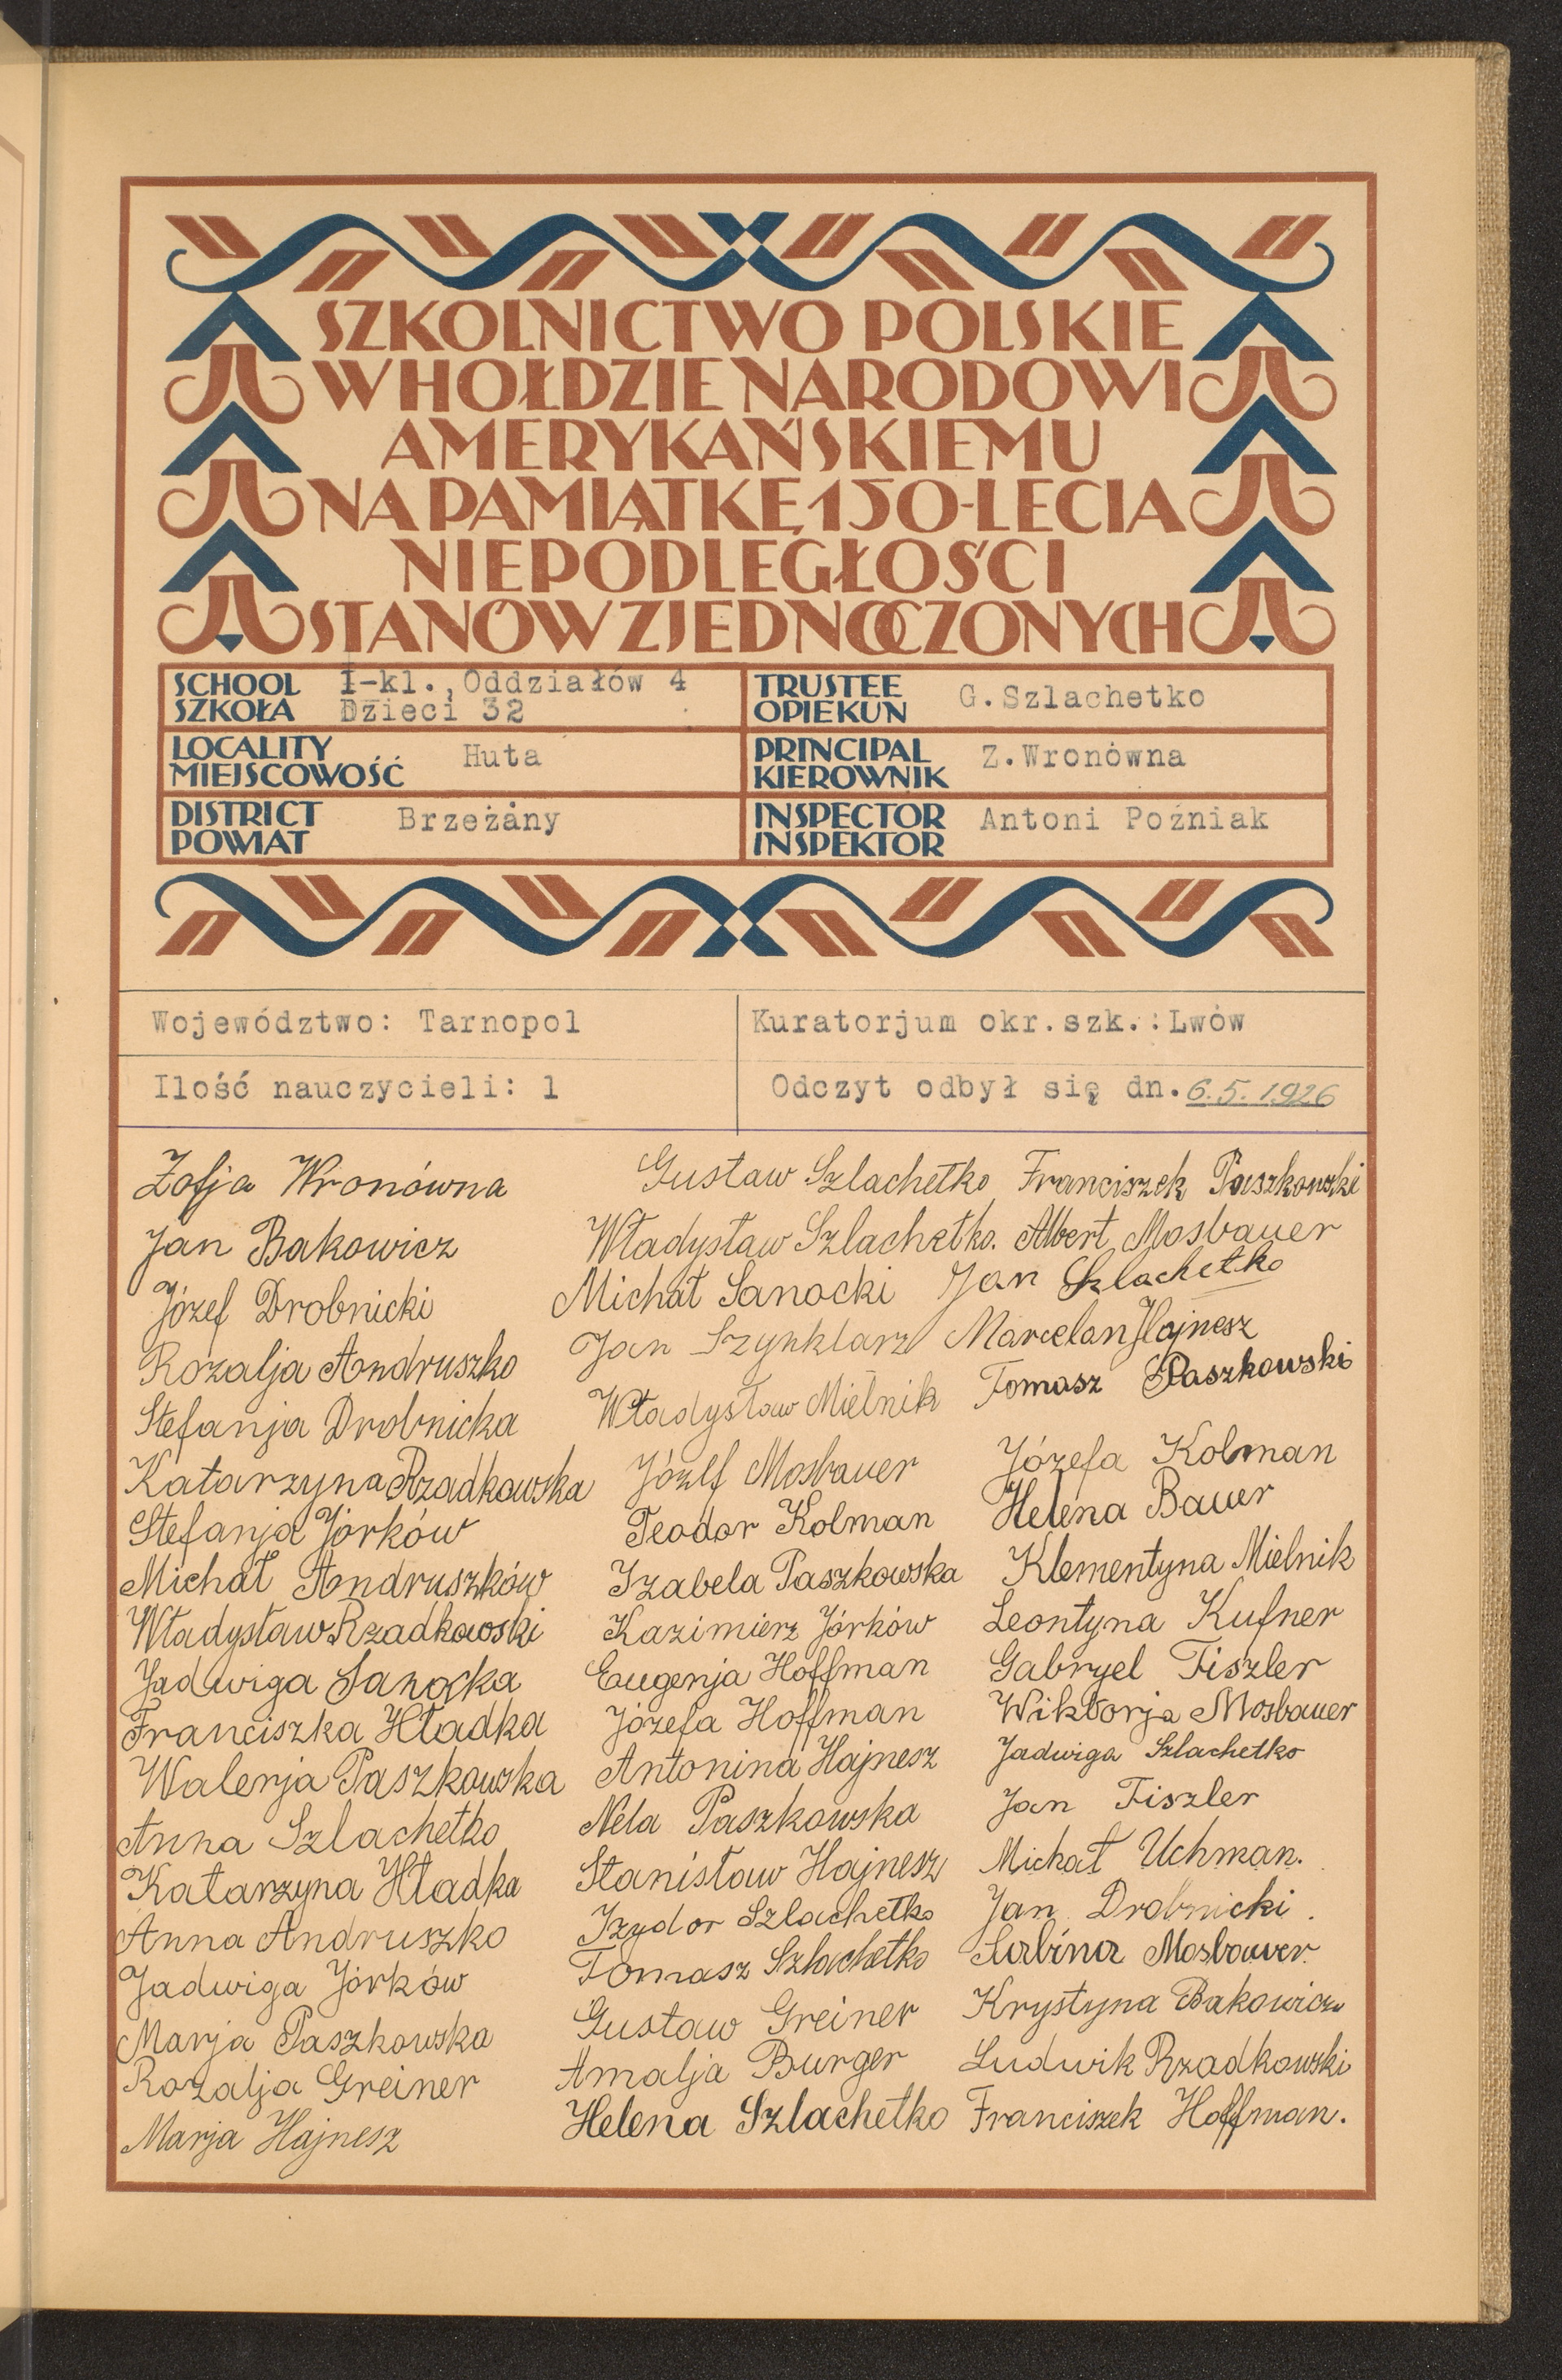 SZKOLNICTWO POLSKIE
W HOŁDZIE NARODOWI
AMERYKAŃSKIEMU
NA PAMIĄTKĘ 150-LECIA
NIEPODLEGŁOŚCI
STANÓW ZJEDNOCZONYCH
SCHOOL
SZKOŁA
I-kl., Oddziałów 4
Dzieci 32
TRUSTEE
OPIEKUN
G.Szlachetko
LOCALITY
MIEJSCOWOŚĆ
Huta
PRINCIPAL
KIEROWNIK
Z.Wronówna
DISTRICT
POWIAT
Brzeżany
INSPECTOR
INSPEKTOR
Antoni Poźniak
Województwo: Tarnopol
Kuratorjum okr.szk.:Lwów
Ilość nauczycieli: 1
Odczyt odbył się dn. 6.5.1926
Zofja Wronówna
Jan Bakowicz
Józef Drobnicki
Rozalja Andruszko
Stefanja Drobnicka
Katarzyna Rzadkowska
Stefanja Jórków
Michał Andruszków
Władysław Rzadkowski
Jadwiga Sanocka
Franciszka Hładka
Walerja Paszkowska
Anna Szlachetko
Katarzyna Hładka
Anna Andruszko
Jadwiga Jórków
Marja Paszkowska
Rozalja Greiner
Marja Hajnesz
Gustaw Szlachetko
Władysław Szlachetko.
Michał Sanocki
Jan Szynklarz
Władysław Mielnik
Józef Mosbauer
Teodor Kolman
Izabela Paszkowska
Kazimierz Jórków
Eugenja Hoffman
Józefa Hoffman
Antonina Hajnesz
Nela Paszkowska
Stanisław Hajnesz
Izydor Szlachetko
Tomasz Szlachetko
Gustaw Greiner
Amalja Burger
Helena Szlachetko
Franciszek Paszkowski
Albert Mosbauer
Jan Szlachetko
Marcelan Hajnesz
Tomasz Paszkowski
Józefa Kolman
Helena Bauer
Klementyna Mielnik
Leontyna Kufner
Gabryel Fiszler
Wiktorja Mosbauer
Jadwiga Szlachetko
Jan Fiszler
Michał Uchman.
Jan Drobnicki.
Sabina Mosbauer.
Krystyna Bakowicz
Ludwik Rzadkowski
Franciszek Hoffman.